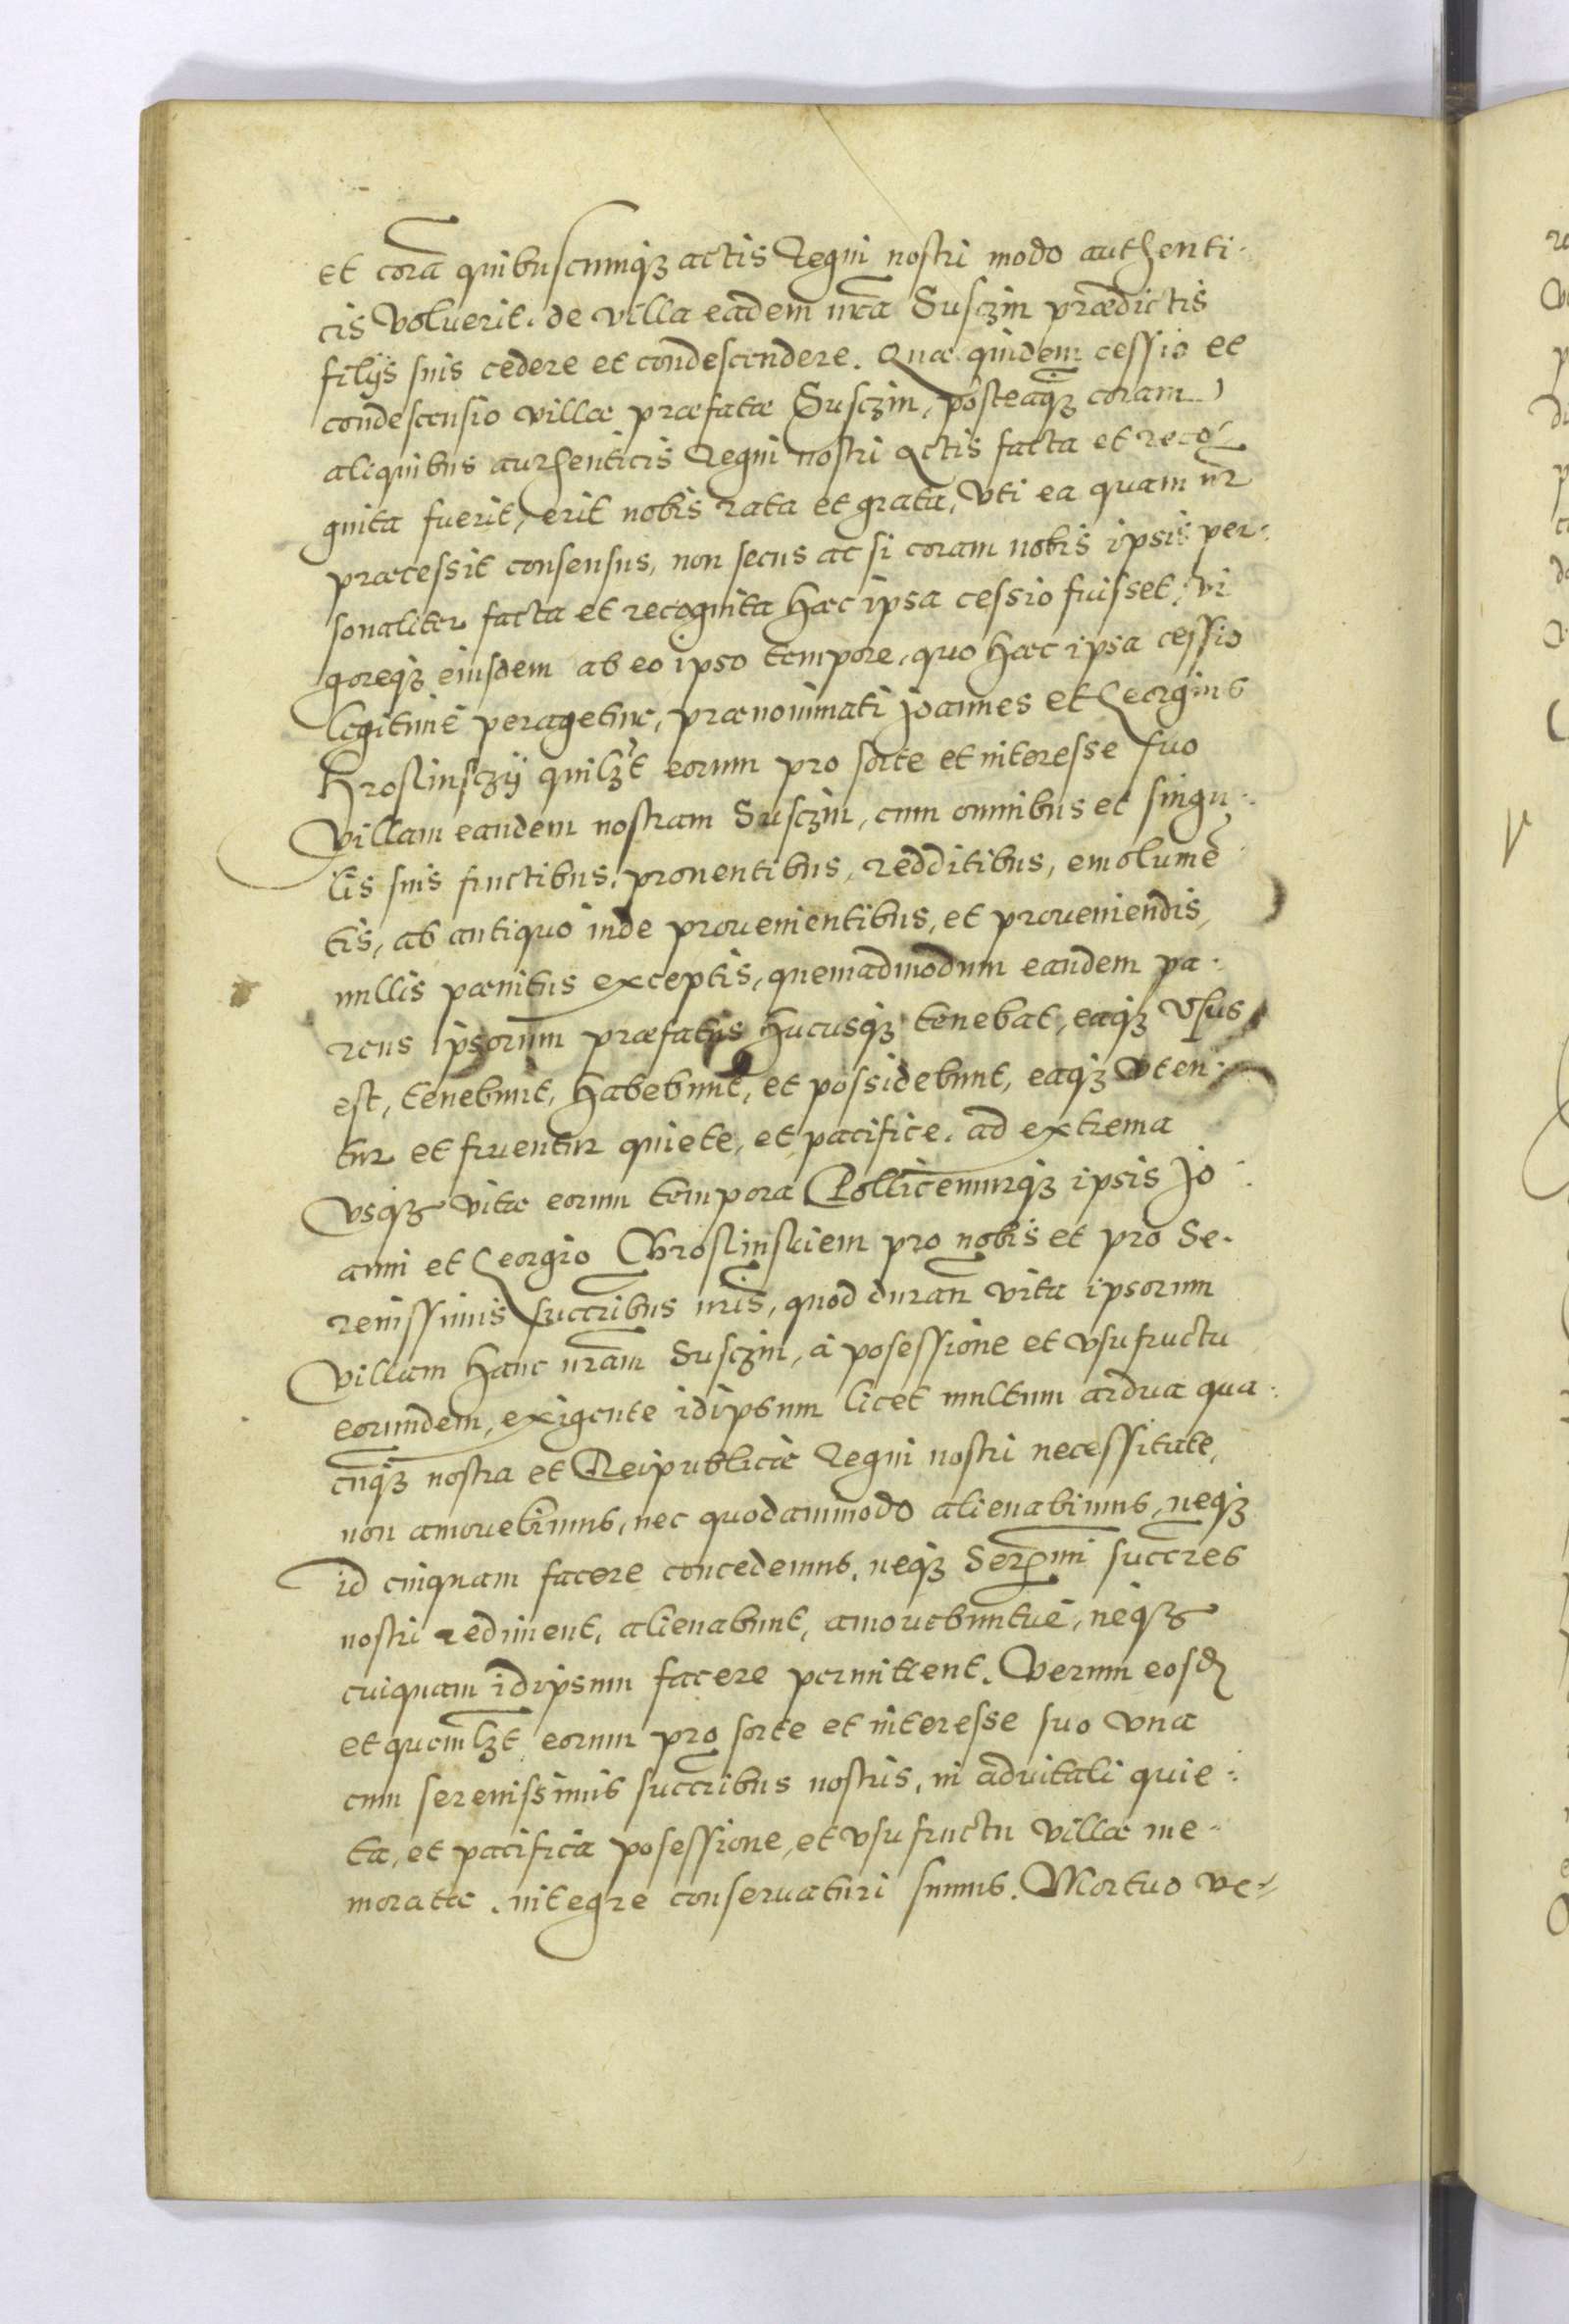 et corã quibuscumq₃ actis Regni nostri modo authenti-
cis voluerit, de villa eadem nrã Susczin prædictis
filijs suis cedere et condescendere. Quæ quidem cessio et
condescensio villæ præfatæ Susczin, posteaq̃₃ coram
aliquibus authenticis Regni nostri Actis facta et reco-
gnita fuerit, erit nobis rata et grata, Vti ea quam nr̃
præcessit consensus, non secus ac si coram nobis ipsis per-
sonaliter facta et recognita hæc ipsa cessio fuisset, vi
goreq₃ eiusdem ab eo ipso tempore, quo hæc ipsa cessio
legitimè peragetur, prænominati Joannes et Georgius
Hroslinsczij quilz̃t eorum pro sorte et interesse suo
villam eandem nostram Susczin, cum omnibus et singu-
lis suis fructibus, prouentibus, redditibus, emolumẽ
tis, ab antiquo inde prouenientibus, et proueniendis,
nullis pænitus exceptis, quemadmodum eandem pa-
rens ipsorum præfatus hucusq₃ tenebat, eaq₃ vsus
est, tenebunt, habebunt, et possidebunt, eaq₃ vten-
tur et fruentur quiete, et pacifice, ad extrema
vsq₃ vitæ eorum tempora Pollicemurq₃ ipsis Jo-
anni et Georgio Chroslinskiem pro nobis et pro Se-
renissimis succr̃ibus nrĩs, quod durañ vita ipsorum
villam hanc nrãm Susczin, à posessione et vsufructu
eorundem, exigente idipsum licet multum ardua qua-
cũq₃ nostra et Reipublicæ Regni nostri necessitate,
non amouebimus, nec quodammodo alienabimus, neq₃
id cuiquam facere concedemus, neq₃ Serẽmi succr̃es
nostri rediment, alienabunt, amouebuntuè, neq₃
cuiquam idipsum facere permittent. Verum eosd̃
et quemlz̃t eorum pro sorte et interesse suo vna
cum serenissimis succr̃ibus nostris, in aduitali quie-
ta, et pacifica posessione, et vsufructu villæ me-
moratæ, integre conseruaturi sumus. Mortuo ve-